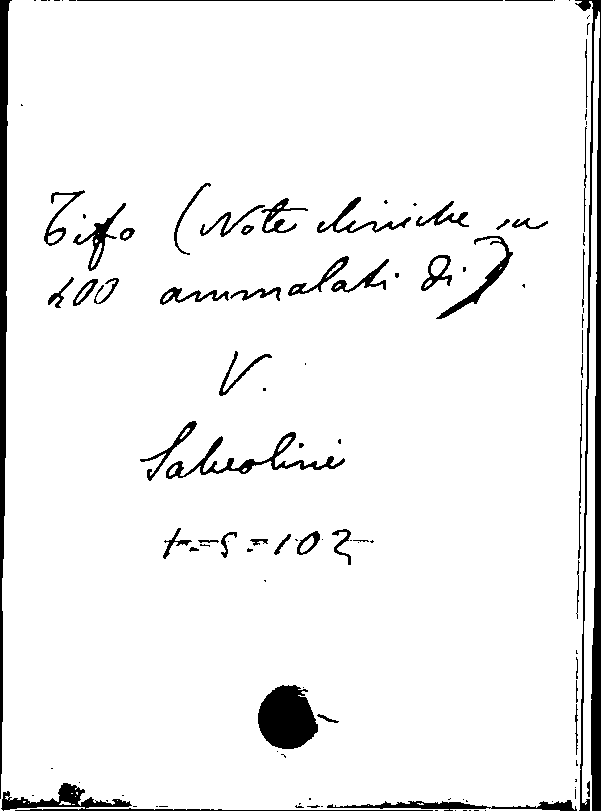 Tifo (Note cliniche su
200 ammalati di).
V.
Sabeolini
t.=5=102